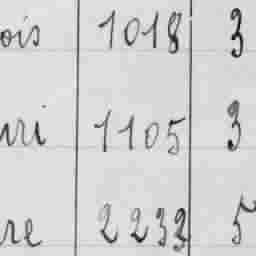 ois 1018 3
uri 1105 3
re 2233 5